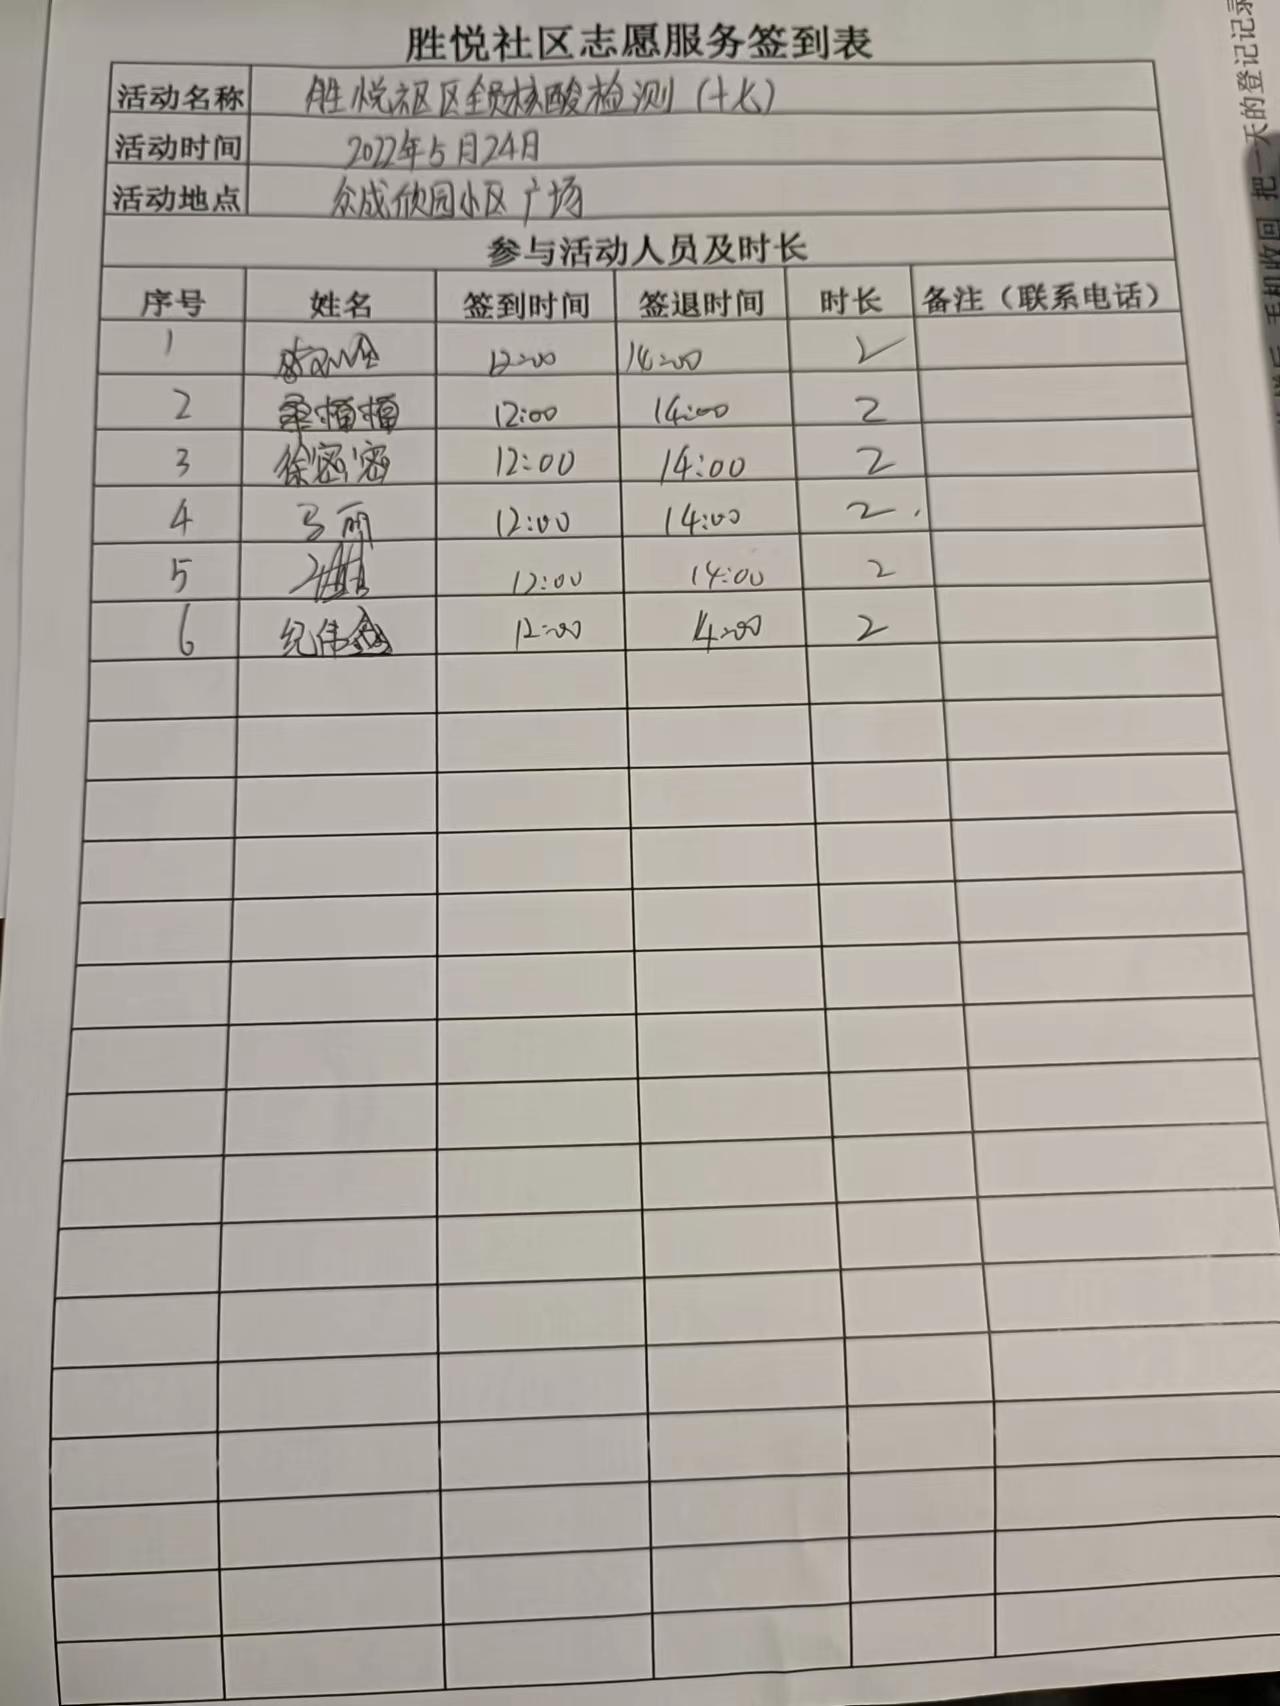 胜悦社区志愿服务签到表
活动名称 胜悦社区区全员核酸检测（十七）
活动时间 2022年5月24日
活动地点 众成欣园小区广场
参与活动人员及时长
序号 姓名 签到时间 签退时间 时长 备注（联系电话）
1 12:00 14:00 2
2 12:00 14:00 2
3 徐密密 12:00 14:00 2
4 马丽 12:00 14:00 2
5 12:00 14:00 2
6 纪伟 12:00 14:00 2
天的登记记录